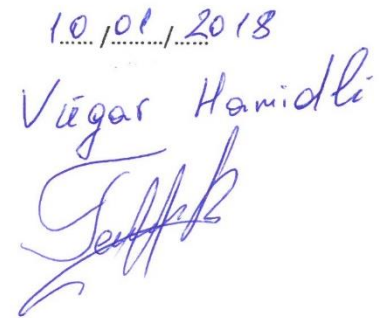 10/01/2018
Vügar Hamidli